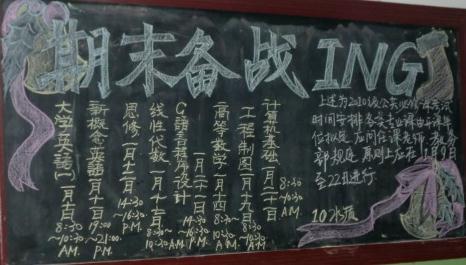 期末备战ING
大学英语(一) 一月十日 8:30~10:30 A.M.
新概念英语 一月十日 19:00~21:00 P.M.
思修 一月十一日 14:30~16:30 P.M.
线性代数 一月十二日 8:30~10:30 A.M.
C语言程序设计 一月十二日 14:30~16:30 P.M.
高等数学 一月十四日 8:30~10:30 A.M.
工程制图 一月十八日 8:30~10:30 A.M.
计算机基础 一月二十日 8:30~10:30 A.M.
上述为2010级公共必修课考试
时间安排各专业课由开课单
位拟定应问任课老师教务
部规定原则上应在1月9日
至22日进行.
10水版